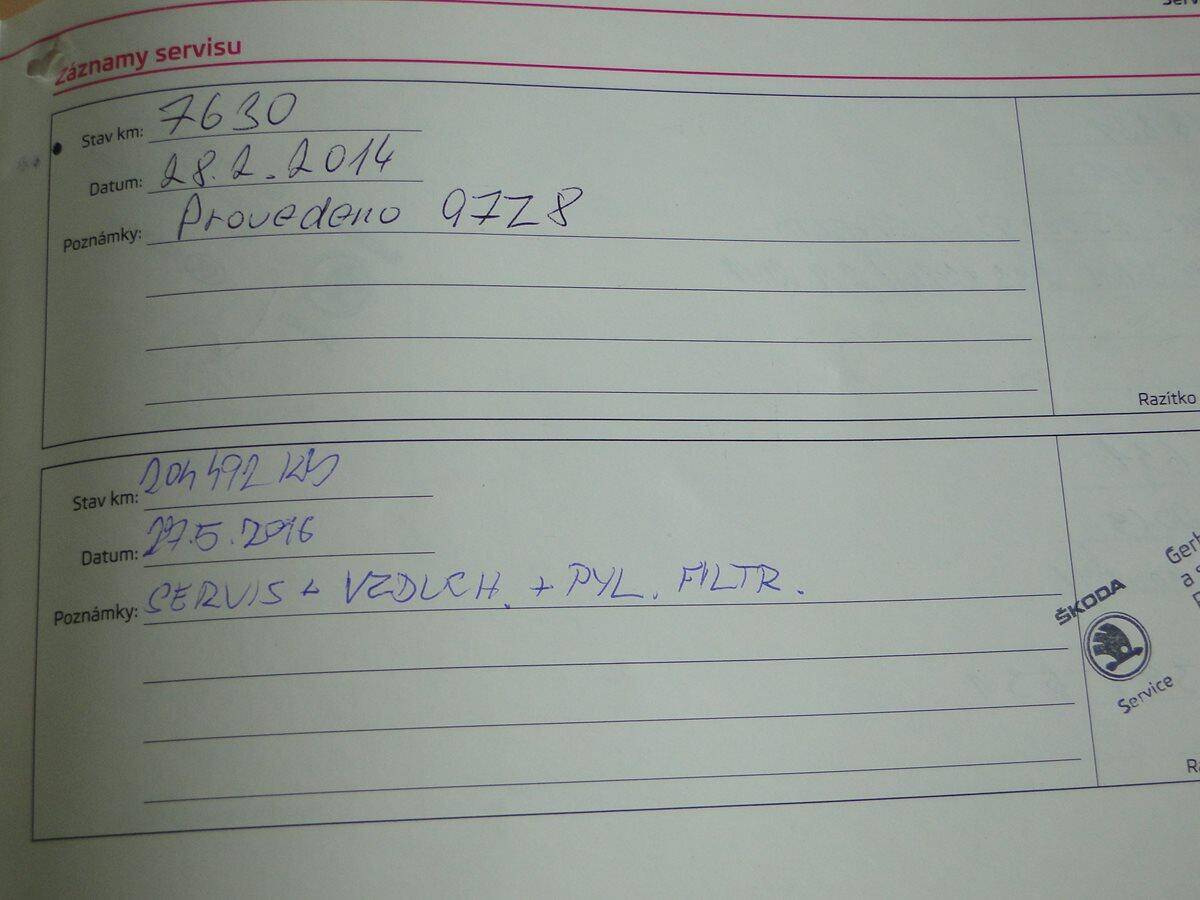 Záznamy servisu
Stav km: 7630
Datum: 28.2.2014
Poznámky: Provedeno 97Z8
Razítko
Stav km: 204 492 KM
Datum: 27.5.2016
Poznámky: SERVIS + VZDUCH. + PYL. FILTR.
ŠKODA
Service